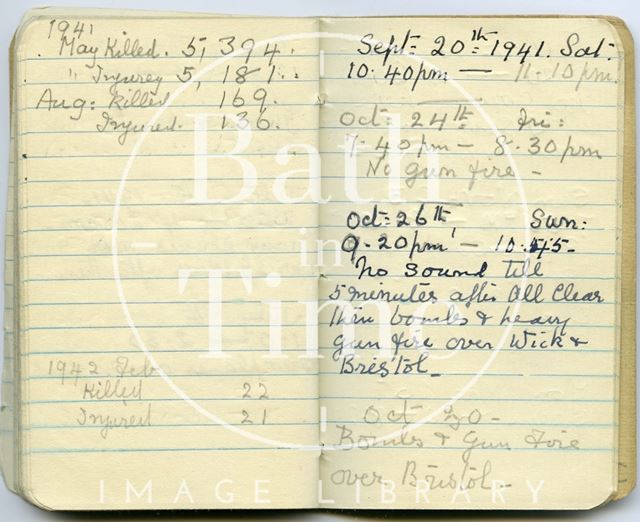 1941
May Killed. 5,394.
" Injurey 5,181.
Aug: Killed 169.
Injured. 136.
1942 Feb
Killed 22
Injured 21
Sept: 20th 1941. Sat:
10.40pm — 11.10pm.
Oct: 24th Fri:
7.40pm — 8.30pm
No gun fire -
Oct: 26th Sun:
9.20pm - 10.45-
No sound till
5 minutes after All Clear
then bombs & heavy
gun fire over Wick &
Bristol_
Oct 30-
Bombs & Gun Fire
over Bristol_-
Bath
in
Time
IMAGE LIBRARY